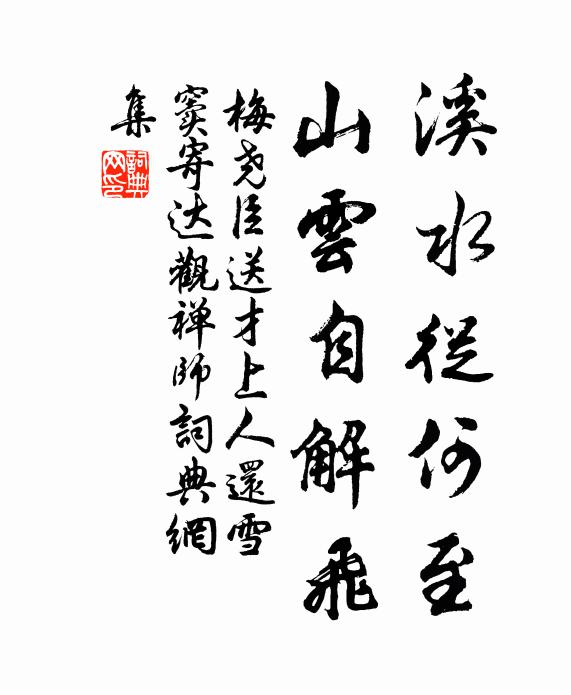 溪水從何至
山雲自解飛
梅尧臣送才上人還雪
竇寄达觀禅師詞典網
集
詞典
网印